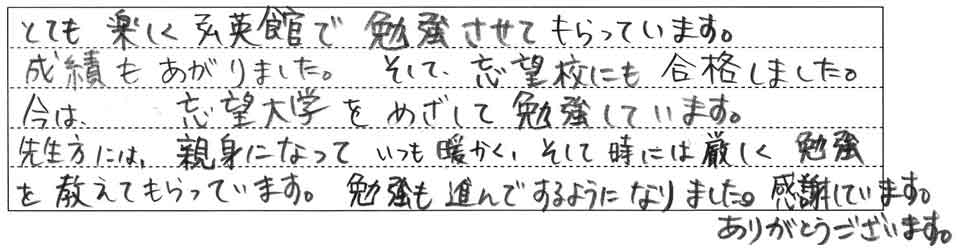 とても 楽しく 弘英館で 勉強させて もらっています。
成績も あがりました。 そして、志望校にも 合格しました。
今は、 志望大学を めざして 勉強しています。
先生方には、親身になって いつも 暖かく、そして 時には 厳しく 勉強
を 教えてもらっています。 勉強も 進んでするようになりました。感謝しています。
ありがとうございます。